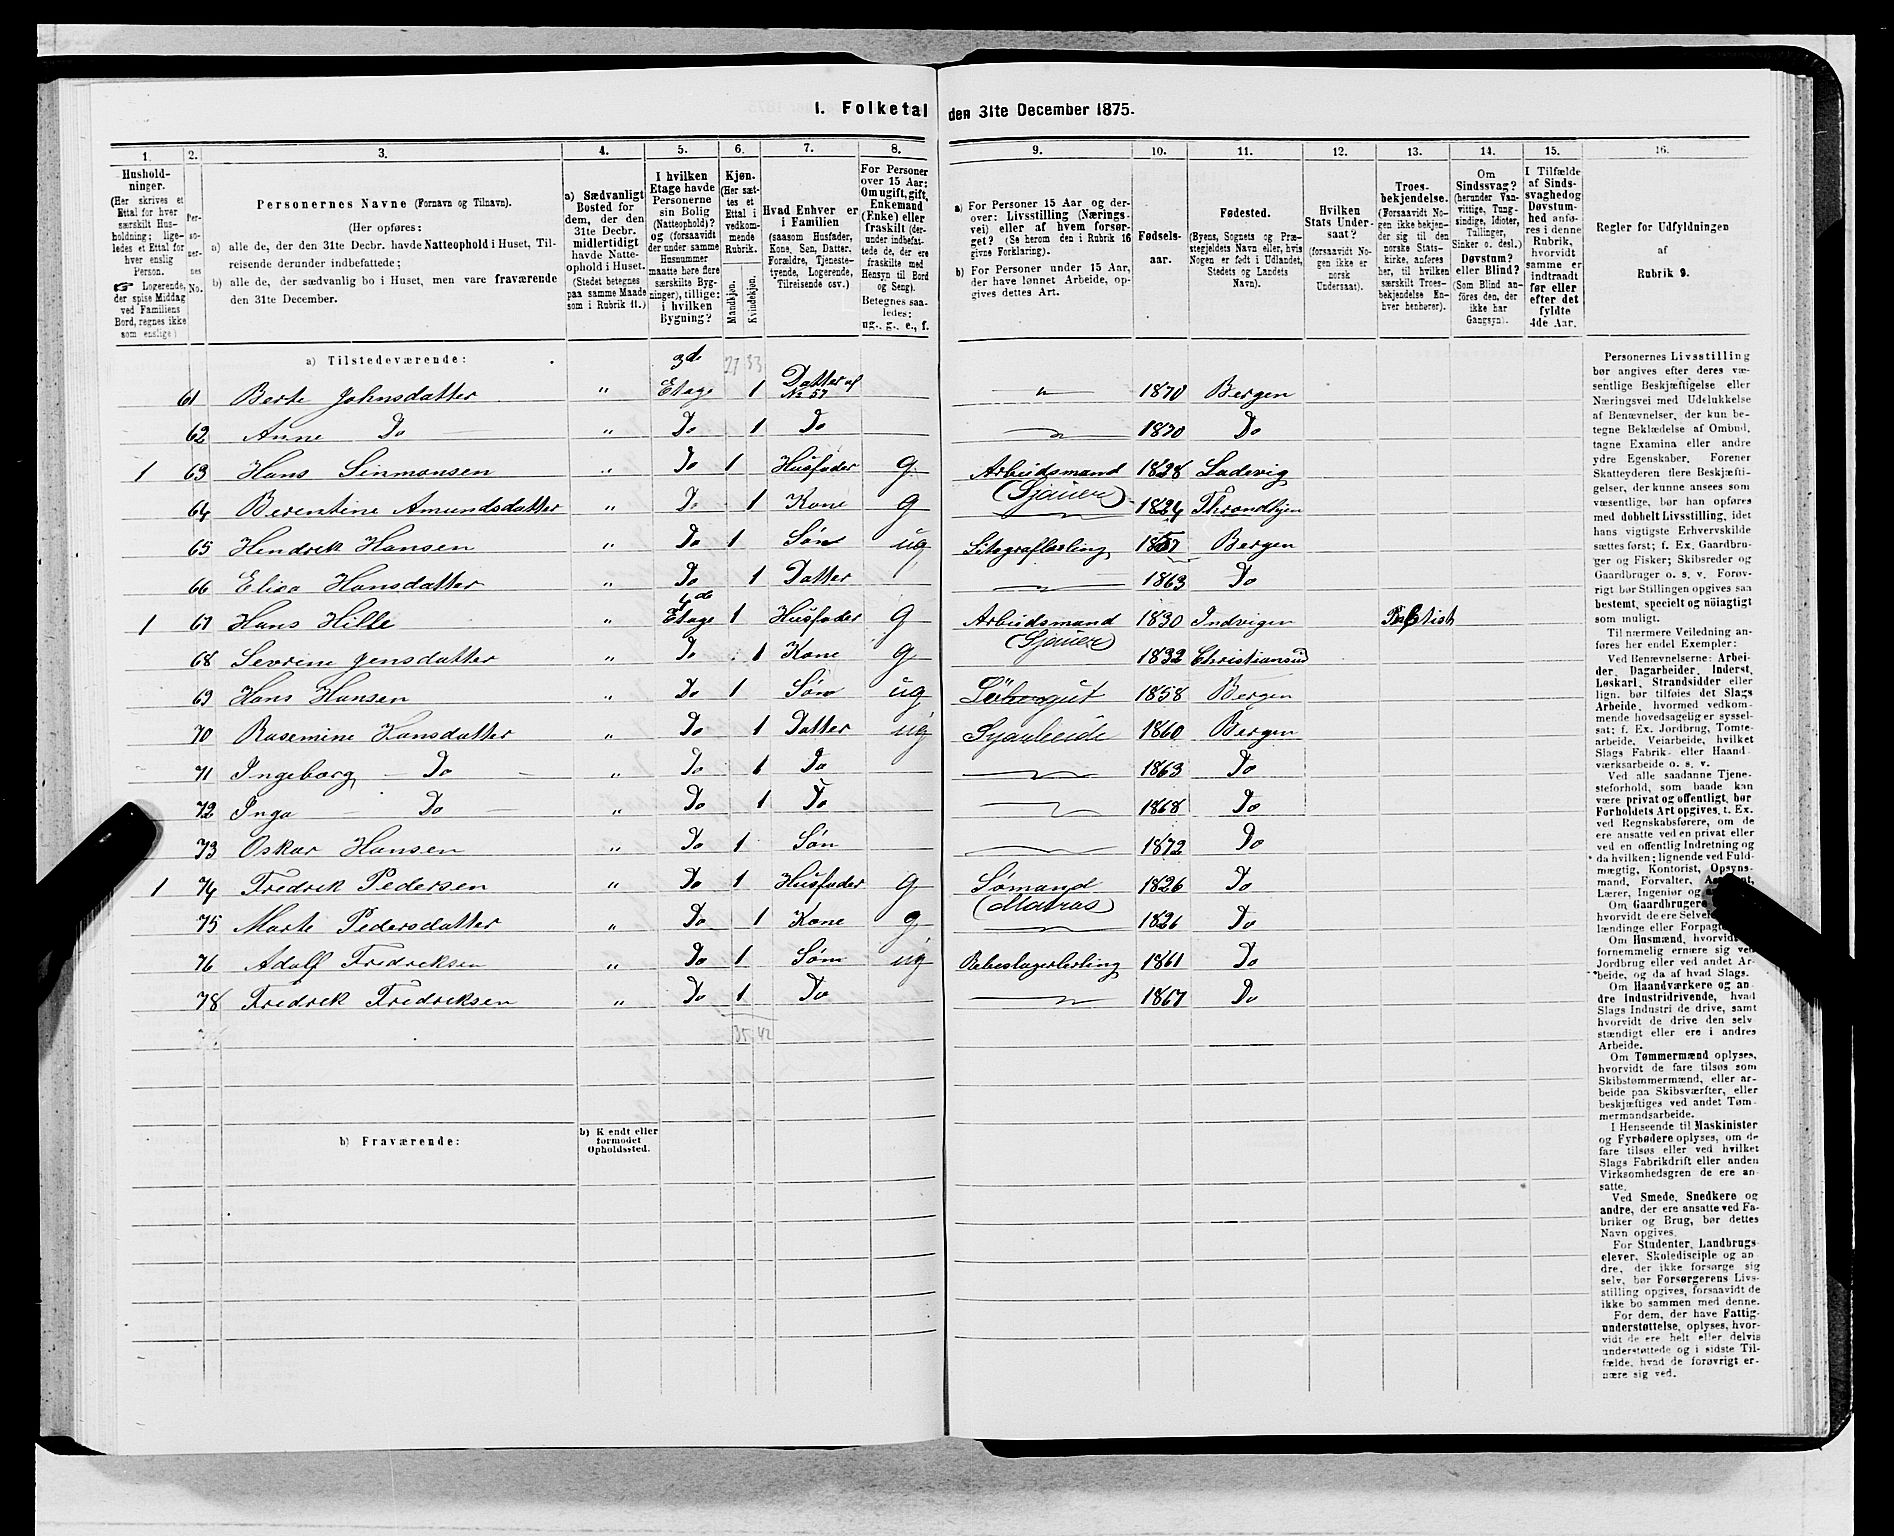 1. Folketal den 31te December 1875.
1. 2. 3. 4. 5. 6. 7. 8. 9. 10. 11. 12. 13. 14. 15. 16.
Hushold-
ninger.
(Her skrives et
Ettal for hver
særskilt Hus-
holdning; lige-
ledes et Ettal for
hver enslig
Person.
☞ Logerende,
der spise Middag
ved Familiens
Bord, regnes ikke
som enslige)
Per-
so-
ner-
nes
No.
Personernes Navne (Fornavn og Tilnavn).
(Her opføres:
a) alle de, der den 31te Decbr. havde Natteophold i Huset, Til-
reisende derunder indbefattede;
b) alle de, der sædvanlig bo i Huset, men vare fraværende
den 31te December.
a) Sædvanligt
Bosted for
dem, der den
31te Decbr.
midlertidigt
havde Natte-
ophold i Huset.
(Stedet betegnes
paa samme Maade
som i Rubrik 11.)
I hvilken
Etage havde
Personerne
sin Bolig
(Natteophold)?
og (forsaavidt
der under samme
Husnummer
maatte høre flere
særskilte Byg-
ninger), tillige:
i hvilken
Bygning?
Kjøn.
(Her sæt-
tes et
Ettal i
vedkom-
mende
Rubrik.
Mandkjøn.
Kvindekjøn.
Hvad Enhver er
i Familien
(saasom Husfader,
Kone, Søn, Datter,
Forældre, Tjeneste-
tyende, Logerende,
Tilreisende osv.)
For Personer
over 15 Aar:
Om ugift, gift,
Enkemand
(Enke) eller
fraskilt (der-
under indbefat-
tede de, der ere
fraskilte med
Hensyn til Bord
og Seng).
Betegnes saa-
ledes:
ug., g., e., f.
a) For Personer 15 Aar og der-
over: Livsstilling (Nærings-
vei) eller af hvem forsør-
get? (Se herom den i Rubrik 16
givne Forklaring).
b) For Personer under 15 Aar,
der have lønnet Arbeide, op-
gives dettes Art.
Fødsels-
aar.
Fødested.
(Byens, Sognets og Præ-
stegjeldets Navn eller, hvis
Nogen er født i Udlandet,
Stedets og Landets
Navn).
Hvilken
Stats Under-
saat?
(forsaavidt No-
gen ikke er
norsk
Undersaat).
Troes-
bekjendelse.
(Forsaavidt No-
gen ikke bekjen-
der sig til den
norske Stats-
kirke, anføres
her, til hvilken
særskilt Troes-
bekjendelse En-
hver henhører).
Om
Sindssvag?
(herunder Van-
vittige, Tung-
sindige, Idioter,
Tullinger,
Sinker o. desl.)
Døvstum?
eller Blind?
(Som Blind an-
føres den, der
ikke har
Gangsyn).
I Tilfælde
af Sinds-
svaghed og
Døvstum-
hed anfø-
res i denne
Rubrik,
hvorvidt
samme er
indtraadt
før eller
efter det
fyldte
4de Aar.
Regler for Udfyldningen
af
Rubrik 9.
a) Tilstedeværende:
27 33
61 Berte Johnsdatter " 3de Etage 1 Datter af No 57 " 1870 Bergen
62 Anne Do " Do 1 Do 1870 Do
1 63 Hans Sinmonsen " Do 1 Husfader g Arbeidsmand (Sjauer) 1828 Ladevig
64 Berentine Amundsdatter " Do 1 Kone g 1824 Throndhjen
65 Hendrek Hansen " Do 1 Søn ug Litografleling 1857 Bergen
66 Elisa Hansdatter " Do 1 Datter 1863 Do
1 67 Hans Hille " 4de Etage 1 Husfader g Arbeidsmand (Sjauer) 1830 Indvigen
68 Sevrine Jensdatter " Do 1 Kone g 1832 Christiansud
69 Hans Hansen " Do 1 Søn ug 1858 Bergen
70 Rasemine Hansdatter " Do 1 Datter ug Syarbeide 1860 Bergen
71 Ingeborg Do " Do 1 Do 1863 Do
72 Inga Do " Do 1 Do 1868 Do
73 Oskar Hansen " Do 1 Søn 1872 Do
1 74 Fredrek Pedersen " Do 1 Husfader g Sømand (Matros) 1826 Do
75 Marte Pedersdatter " Do 1 Kone g 1826 Do
76 Adolf Fredreksen " Do 1 Søn ug Rebeslagerlerling 1861 Do
78 Fredrek Fredreksen " Do 1 Do 1867 Do
35 42
b) Fraværende:
b) Kendt eller
formodet
Opholdssted.
Personernes Livsstilling
bør angives efter deres væ-
sentlige Beskjæftigelse eller
Næringsvei med Udelukkelse
af Benævnelser, der kun be-
tegne Beklædelse af Ombud,
tagne Examina eller andre
ydre Egenskaber. Forener
Skatteyderen flere Beskjæfti-
gelser, der kunne ansees som
væsentlige, bør han opføres
med dobbelt Livsstilling, idet
hans vigtigste Erhvervskilde
sættes først; f. Ex. Gaardbru-
ger og Fisker; Skibsreder og
Gaardbruger o. s. v. Forøv-
rigt bør Stillingen opgives saa
bestemt, specielt og nöiagtigt
som muligt.
Til nærmere Veiledning an-
føres her endel Exempler:
Ved Benævnelserne: Arbei-
der, Dagarbeider, Inderst,
Løskarl, Strandsidder eller
lign. bør tilføies det Slags
Arbeide, hvormed vedkom-
mende hovedsagelig er syssel-
sat; f. Ex. Jordbrug, Tomte-
arbeide, Veiarbeide, hvilket
Slags Fabrik- eller Haand-
værksarbeide o. s. v.
Ved alle saadanne Tjene-
steforhold, som baade kan
være privat og offentligt, bør
Forholdets Art opgives, t. Ex.
ved Regnskabsførere, om de
ere ansatte ved en privat eller
ved en offentlig Indretning og
da hvilken; lignende ved Fuld-
mægtig, Kontorist, Opsyns-
mand, Forvalter,
Lærer, Ingeniør og
Om Gaardbrugere
hvorvidt de ere
lændinge eller
Om Husmænd, hvorvidt
fornemmelig ernære sig ved
Jordbrug eller ved andet Ar-
beide, og da af hvad Slags.
Om Haandværkere og an-
dre Industridrivende, hvad
Slags Industri de drive, samt
hvorvidt de drive den selv-
stændigt eller ere i andres
Arbeide.
Om Tømmermænd oplyses,
hvorvidt de fare tilsøs som
Skibstømmermænd, eller ar-
beide paa Skibsværfter, eller
beskjæftiges ved andet Tøm-
mermandsarbeide.
I Henseende til Maskinister
og Fyrbødere oplyses, om de
fare tilsøs eller ved hvilket
Slags Fabrikdrift eller anden
Virksomhedsgren de ere an-
satte.
Ved Smede, Snedkere og
andre, der ere ansatte ved Fa-
briker og Brug, bør dettes
Navn opgives.
For Studenter, Landbrugs-
elever, Skoledisciple og an-
dre, der ikke forsørge sig
selv, bør Forsørgerens Livs-
stilling opgives, forsaavidt de
ikke bo sammen med denne.
For dem, der have Fattig-
understøttelse, oplyses, hvor-
vidt de ere helt eller delvis
understøttede og i sidste Til-
fælde, hvad de forøvrigt er-
nære sig ved.